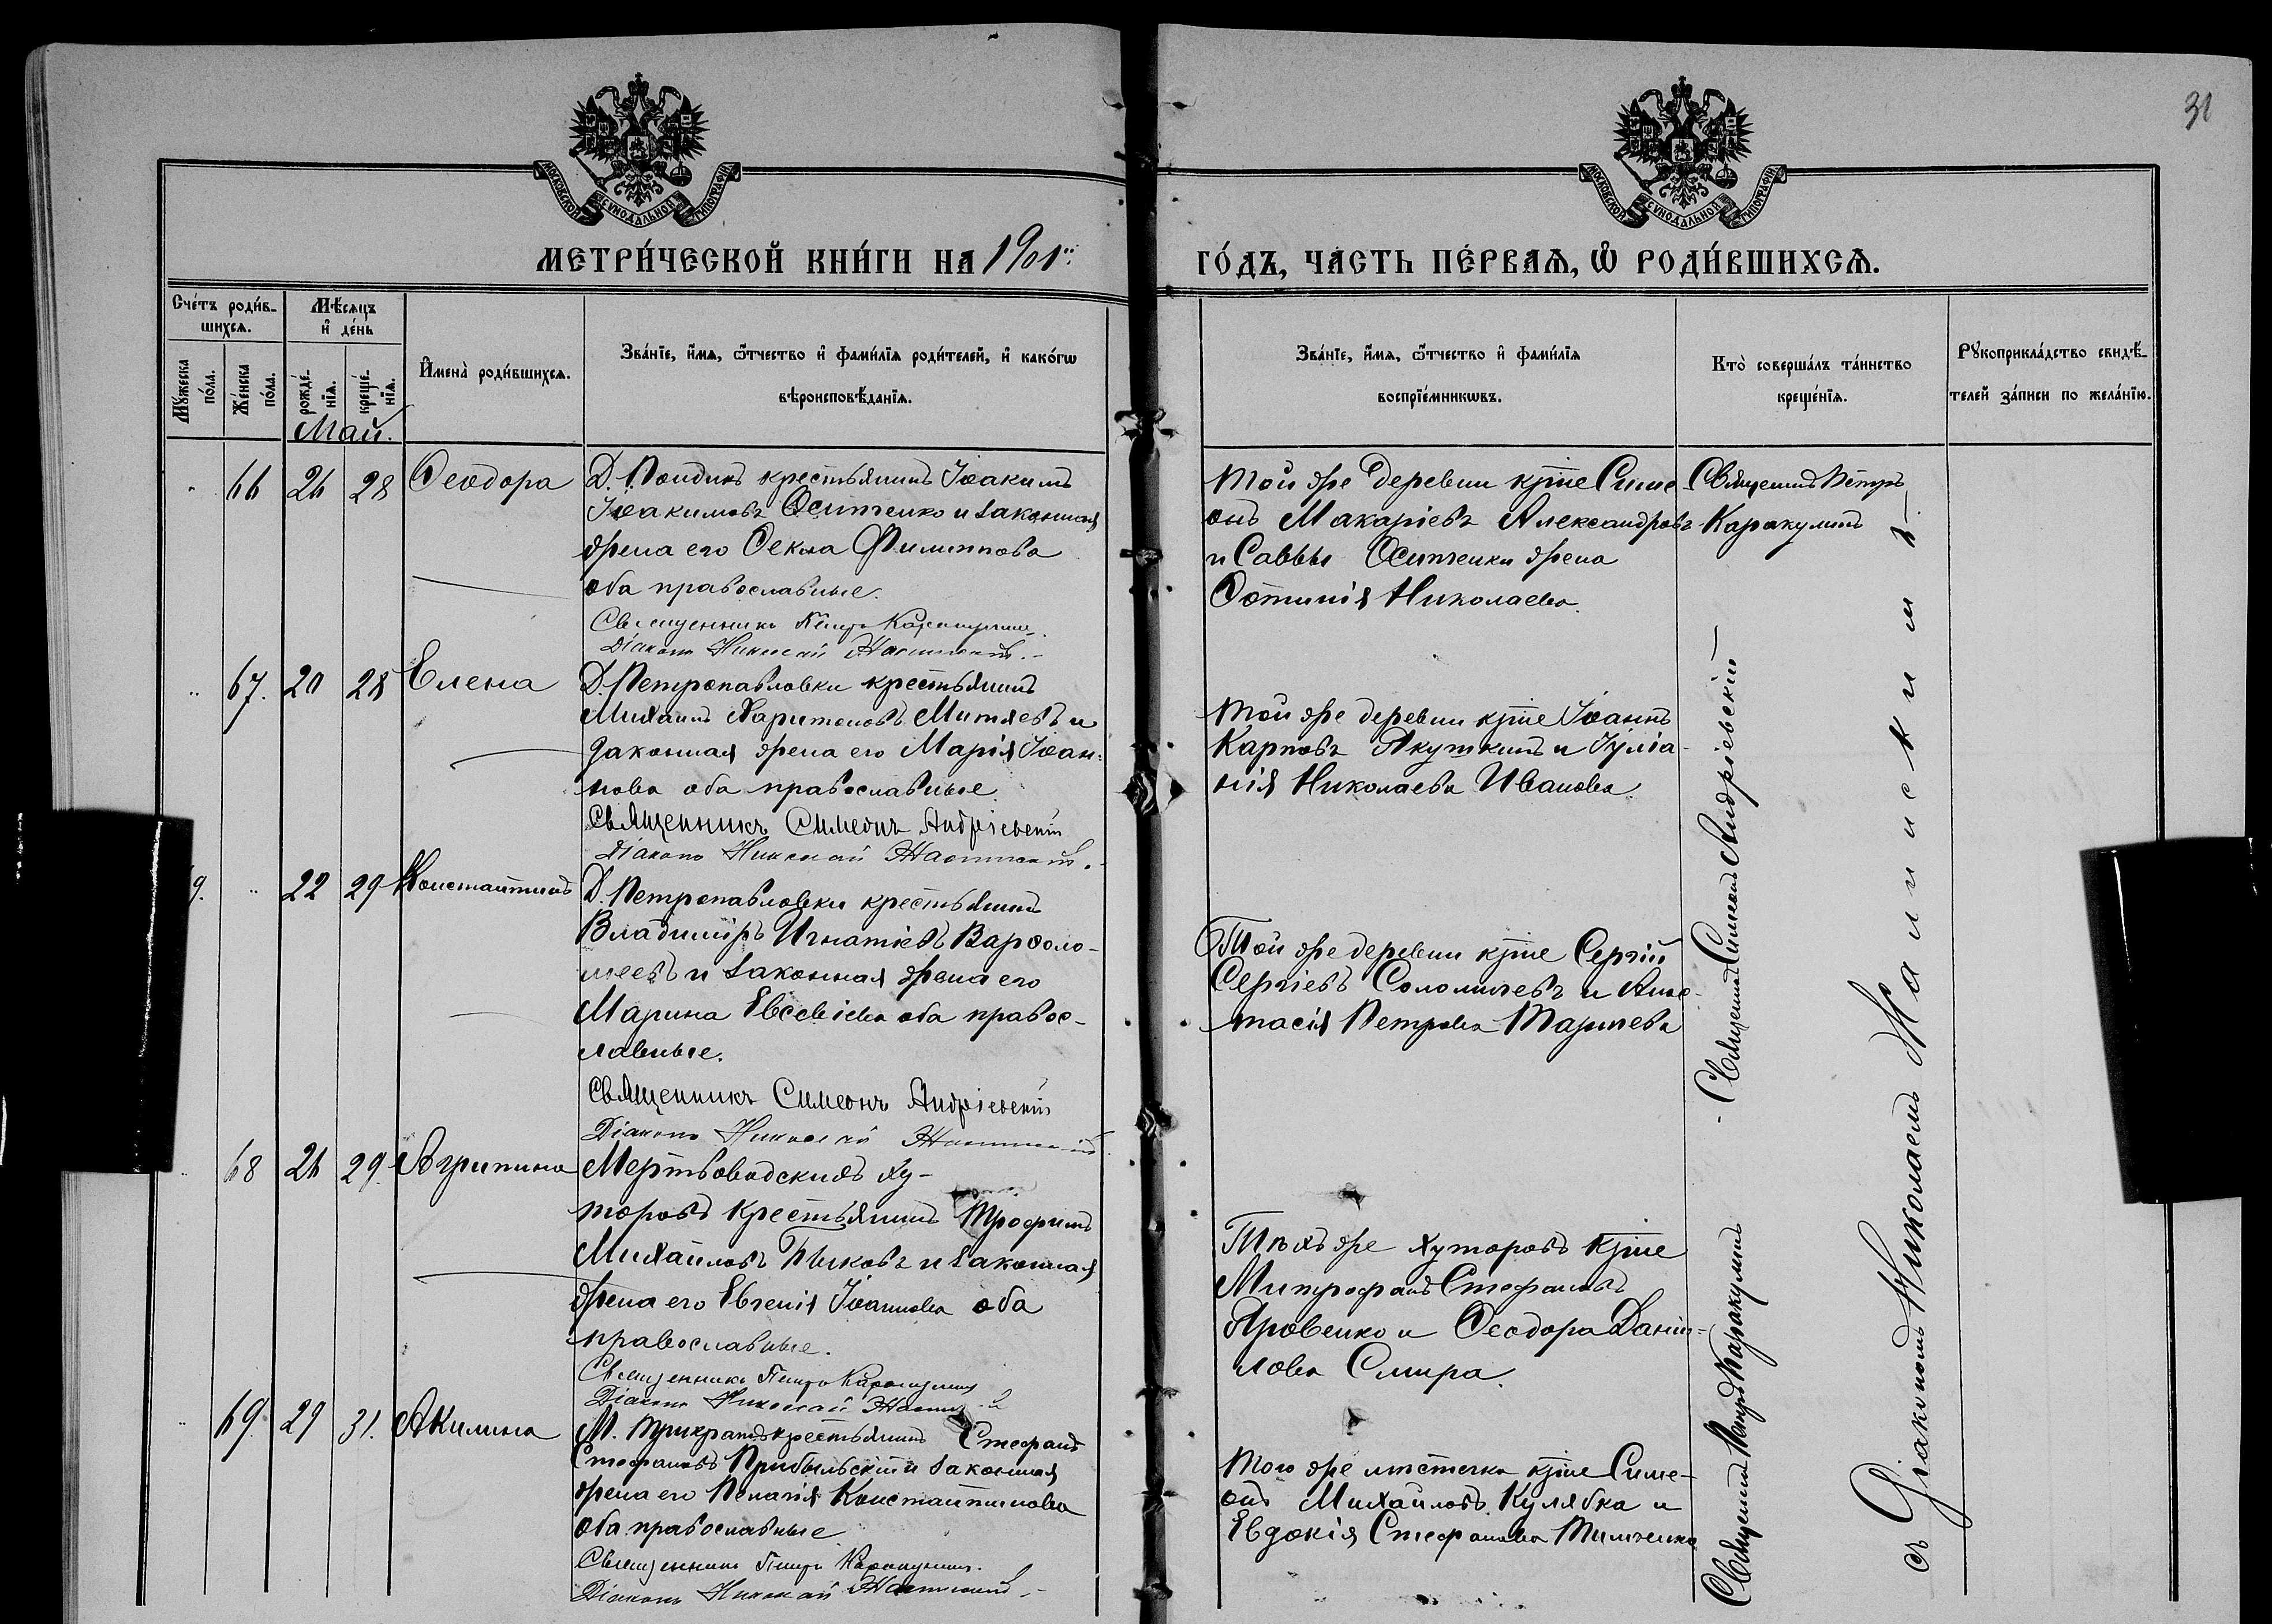 31
МОСКОВСКОЙ СѴНОДАЛЬНОЙ ТИПОГРАФІИ
МОСКОВСКОЙ СѴНОДАЛЬНОЙ ТИПОГРАФІИ
МЕТРИ́ЧЕСКОЙ КНИ́ГИ НА 1901й
ГО́ДЪ, ЧАСТЬ ПЕ́РВАѦ, Ѡ РОДИ́ВШИХСѦ.
Сче́тъ роди́в-
шихсѧ.
Мѣ́сѧцъ
и҆ де́нь
Мꙋ́жеска
по́ла.
Же́нска
по́ла.
рожде́-
нїѧ.
креще́-
нїѧ.
И҆мена̀ роди́вшихсѧ.
Зва́нїе, и҆́мѧ, ѻ҆́тчество и҆ фами́лїѧ роди́телей, и҆ како́гѡ
вѣроисповѣ́данїѧ.
Зва́нїе, и҆́мѧ, ѻ҆́тчество и҆ фами́лїѧ
воспрїе́мникѡвъ.
Кто̀ соверша́лъ та́инство
креще́нїѧ.
Рꙋкоприкла́дство свидѣ́-
телей за́писи по жела́нїю.
Май.
66 26 28 Ѳеодора
крестьянинъ Іоакимъ
Іоакимовъ Осипченко и законная
жена его Ѳекла Филиппова
оба православные.
Священникъ Петръ Каракулинъ
Діаконъ Николай
Той же деревни кр̃не Симе-
онъ Макаріевъ Александровъ
и Саввы Осипченки жена
Фотинія Николаева.
Священ. Петръ
Каракулинъ
67. 20 28 Елена
Д. Петропавловки крестьянинъ
Михаилъ Харитоновъ Митяевъ и
законная жена его Марія Іоан-
нова оба православные.
Священникъ Симеонъ Андріевскій
Діаконъ Николай
Той же деревни кр̃не Іоаннъ
Карповъ Якуткинъ и Іуліа-
нія Николаева Иванова.
9. " 22 29 Константинъ
Д. Петропавловки крестьянинъ
Владиміръ Игнатіевъ Варѳоло-
меевъ и законная жена его
Марина Евсевіева оба правос-
лавные.
Священникъ Симеонъ Андріевскій
Діаконъ Николай
Той же деревни кр̃не Сергій
Сергіевъ Соломичевъ и Анас-
тасія Петрова
Священ. Симеонъ Андріевскій
68 26 29. Агрипина
Мертвоводскихъ ху-
торовъ крестьянинъ Трофимъ
Михайловъ Быковъ и законная
жена его Евгенія Іоаннова оба
православные.
Священникъ Петръ Каракулинъ
Діаконъ Николай
Тѣхъ же хуторовъ кр̃не
Митрофанъ Стефановъ
Яровенко и Ѳеодора Даніи-
лова Смира.
69. 29 31. Акилина
М. Трикратъ крестьянинъ Стефанъ
Стефановъ Прибыльскій и законная
жена его Пелагія Константинова
оба православные
Священникъ Петръ Каракулинъ.
Діаконъ Николай
Того же мѣстечка кр̃не Симе-
онъ Михайловъ Кулябка и
Евдокія Стефанова Тимченко
Священ. Петръ Каракулинъ
съ Діакономъ Николаемъ